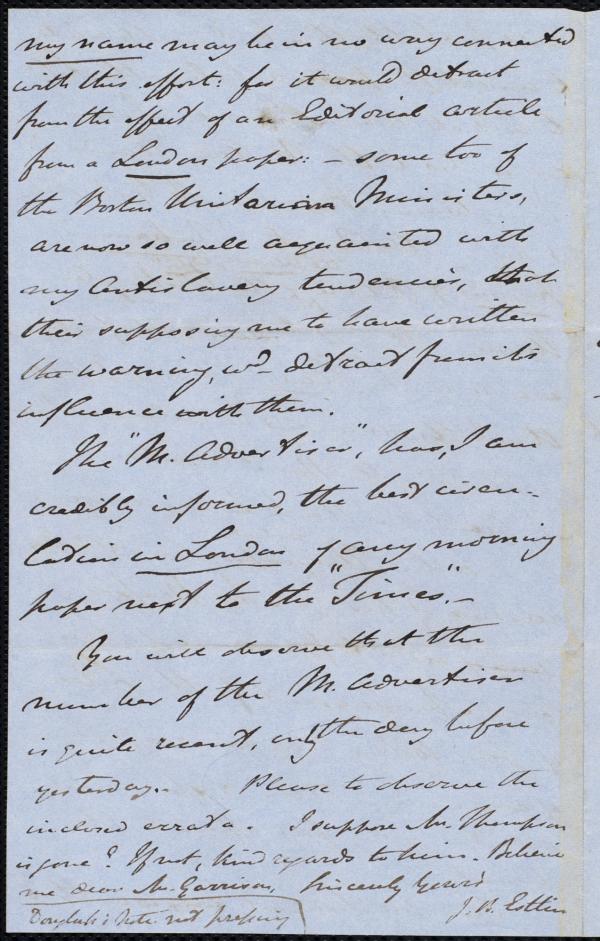 my name may be in no way connected
with this effort: for it would detract
from the effect of an Editorial article
from a London paper: - some too of
the Boston Unitarian Ministers,
are now so well acquainted with
my antislavery tendencies, that
their supposing me to have written
the warning, wd detract from its
influence with them.
The "M. Advertiser", has, I am
credibly informed, the best circu-
lation in London of any morning
paper next to the "Times".-
You will observe that the
number of the M. Advertiser
is quite recent, only the day before
yesterday.- Please to observe the
inclosed errata. I suppose Mr. Thompson
is gone? If not, kind regards to him. Believe
me dear Mr. Garrison, Sincerely yours
J. B. Estlin
Douglass's note not pressing